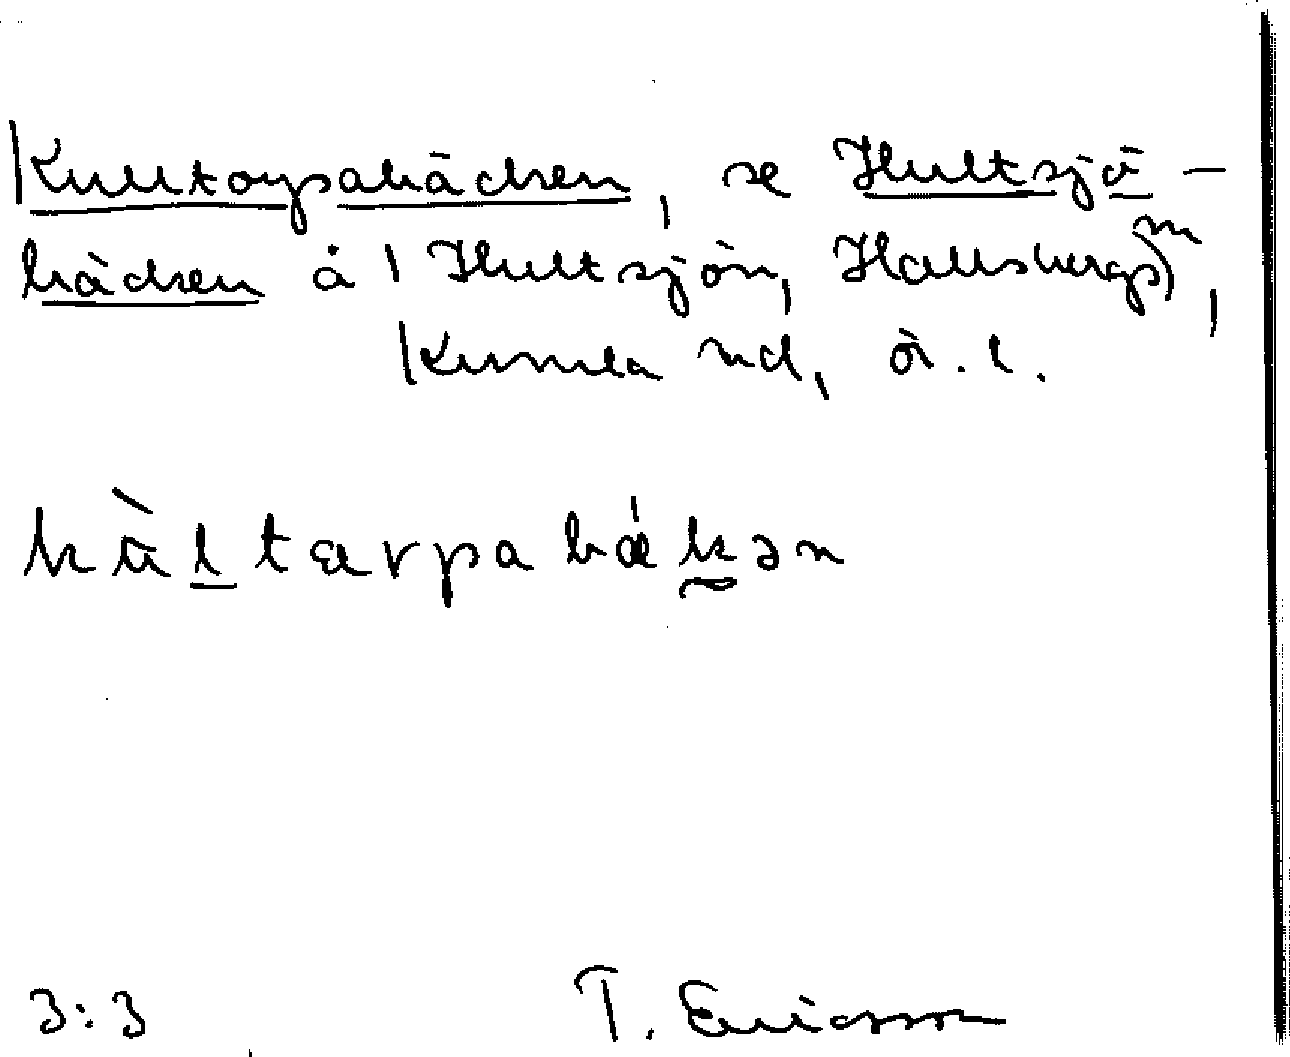 Kulltorpabäcken, se Hultsjö-
bäcken å Hultsjön, Hallsbergs m,
Kumla hd, Ö.l.
kùltarpabǽkən
3:3 T. Ericsson